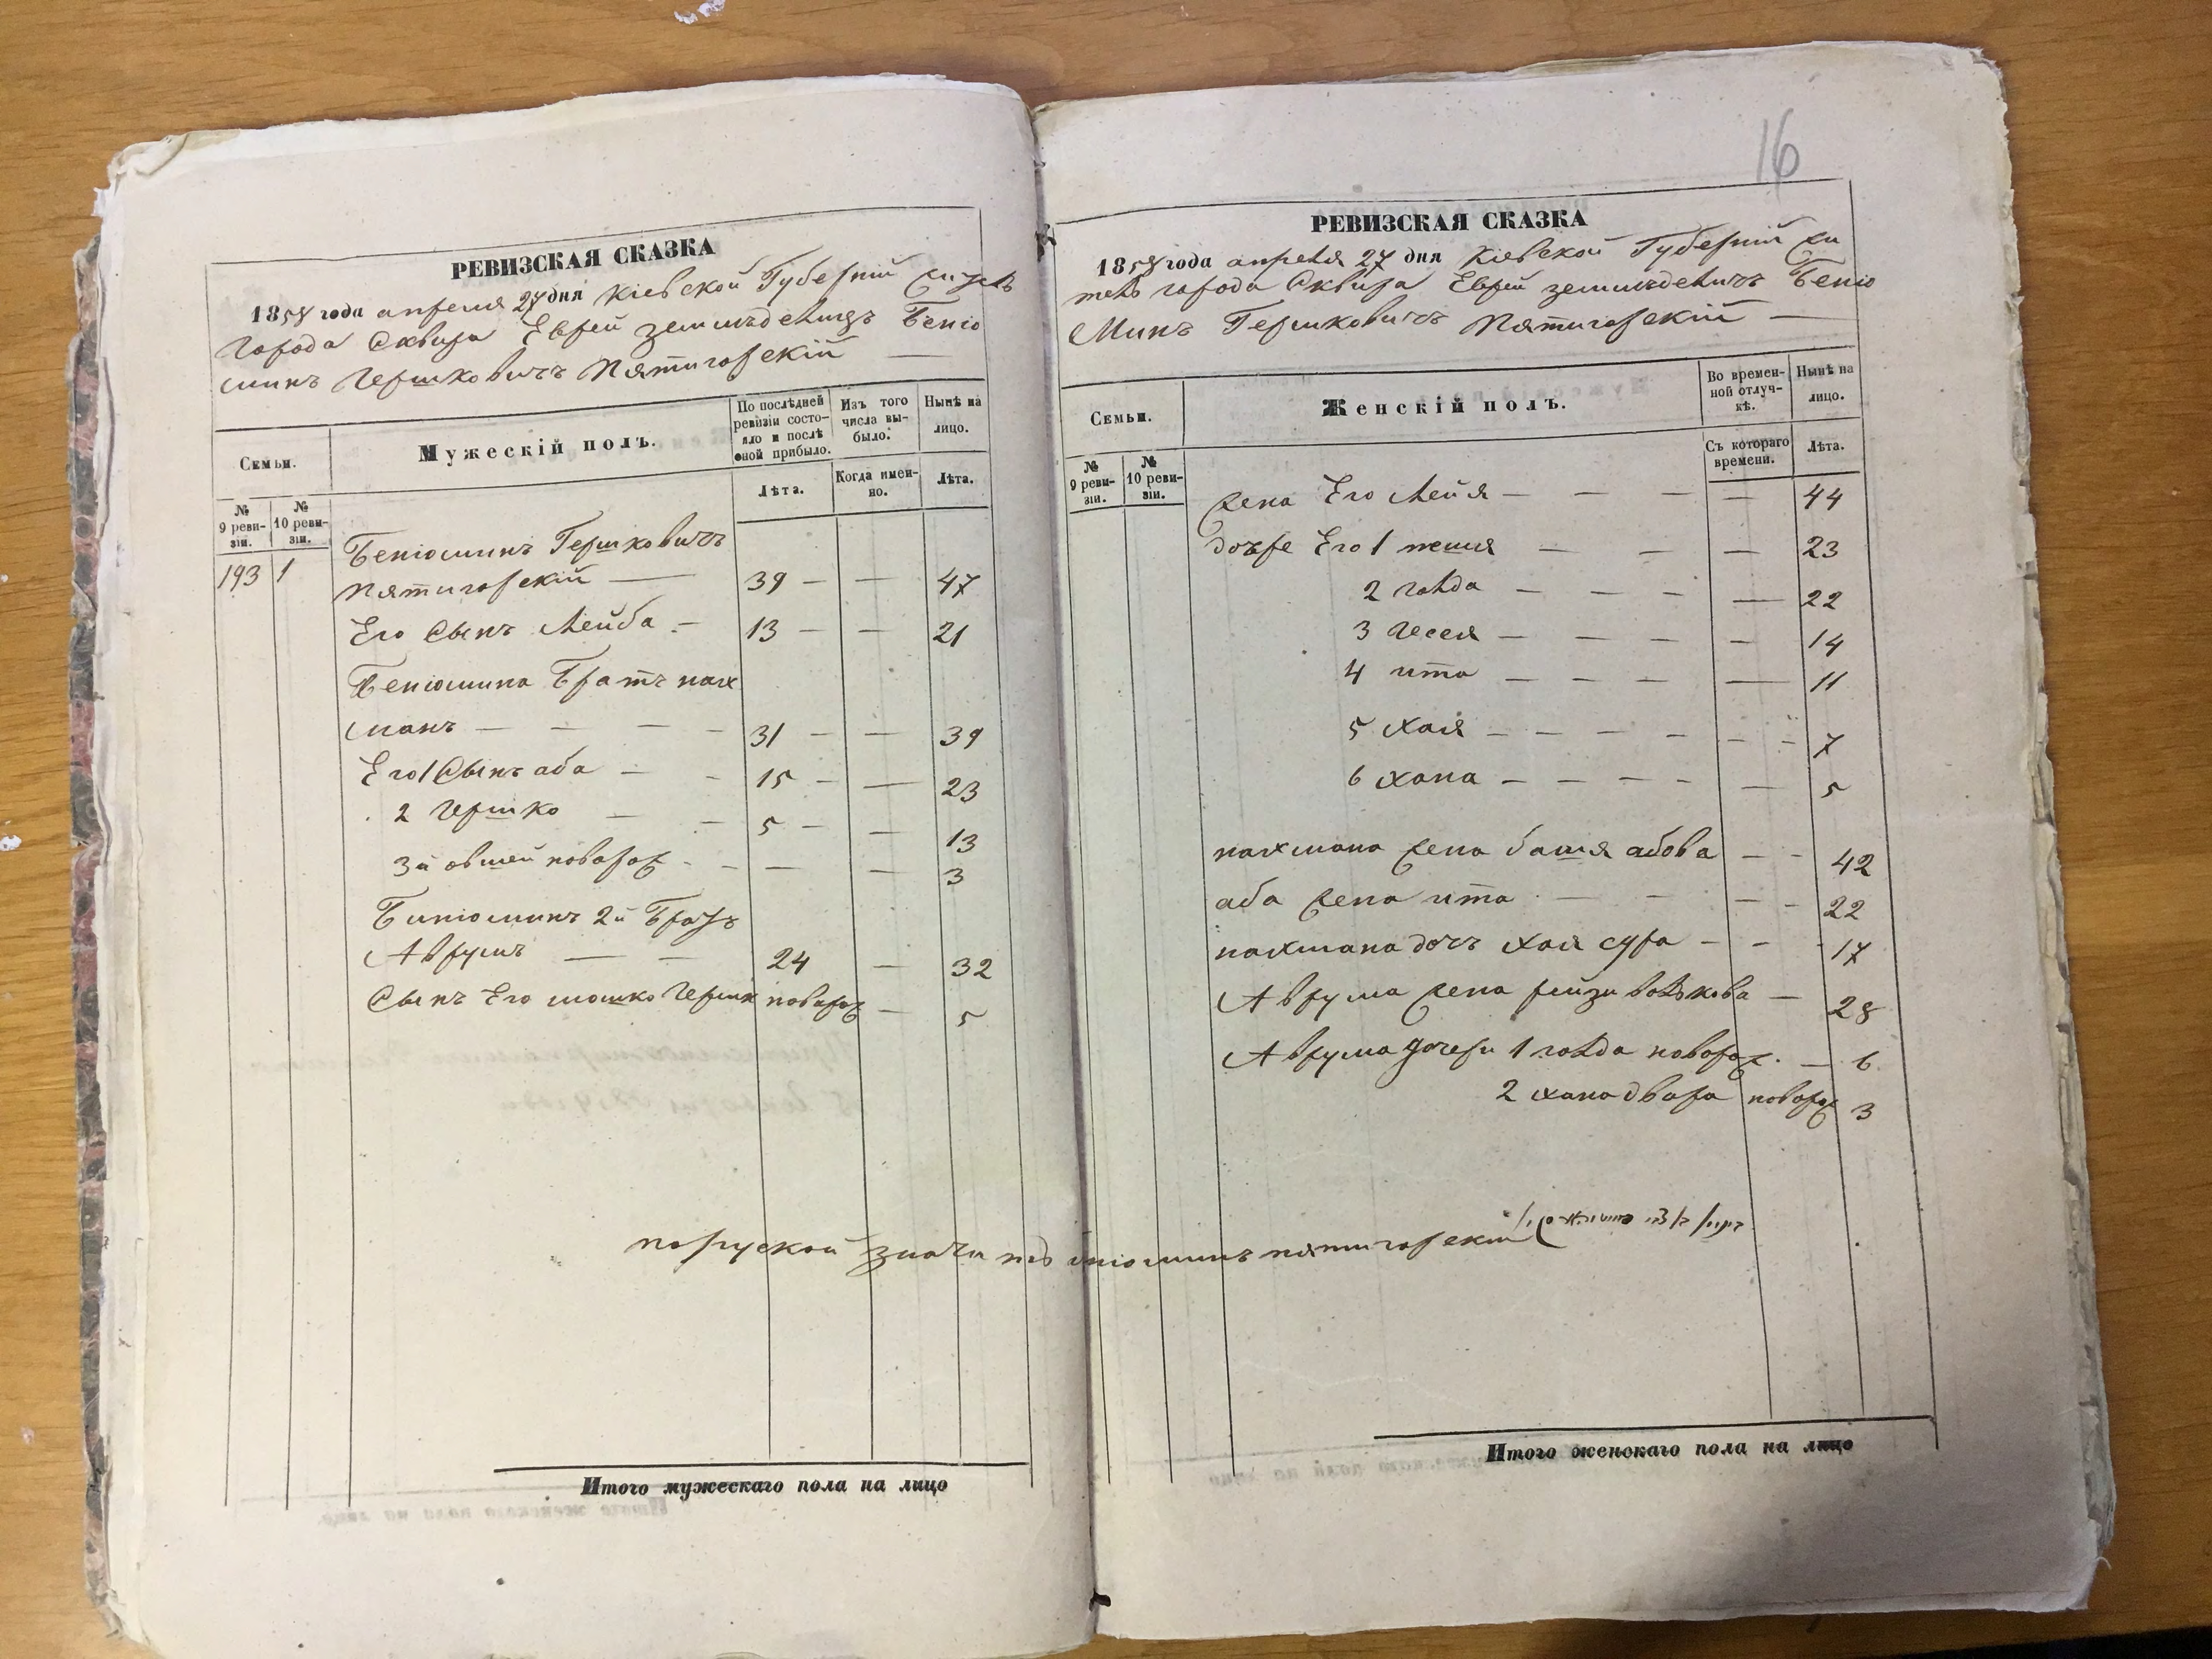 РЕВИЗСКАЯ СКАЗКА
1858 года апреля 27 дня Кіевской Губерній житель
города Сквира Еврей земледелецъ Беніо
минъ Гершковичъ Пятигорскій —
Семьи.
Мужескій полъ.
По послѣдней ревизіи состояло и послѣ оной прибыло.
Изъ того числа выбыло.
Нынѣ на лицо.
№ 9 ревизіи.
№ 10 ревизіи.
Лѣта.
Когда именно.
Лѣта.
Беніоминъ Гершковичъ
193 1 Пятигорскій — 39 — — 47
Его Сынъ Лейба — 13 — — 21
Беніомина Братъ нах
манъ — — — — 31 — — 39
Его 1 Сынъ аба — — 15 — — 23
2 Гершко — — 5 — — 13
3й овшей новорож — — — — 3
Биніоминъ 2й Братъ
Аврумъ — — 24 — 32
Сынъ Его мошко Гершк новорож — 5
Итого мужескаго пола на лицо
16
РЕВИЗСКАЯ СКАЗКА
1858 года апреля 27 дня Кіевской Губерній жи
тель города Сквира Еврей
Беніо
Минъ Гершковичъ Пятигорскій —
Семьи.
Женскій полъ.
Во временной отлучкѣ.
Нынѣ на лицо.
№ 9 ревизіи.
№ 10 ревизіи.
Съ котораго времени.
Лѣта.
жена Его Лейя — — — — 44
Его 1 — — — 23
2 голда — — — — 22
3 Геселя — — — — 14
4 ита — — — — 11
5 хая — — — — — — 7
6 хана — — — — — 5
нахмана жена бася абова — — 42
аба жена ита — — — — 22
нахмана дочъ хая сура — — 17
Аврума жена рейзи волькова — 28
Аврума дочери 1 голда новорож. — 6
2 хана двора новорож 3
по руской
беніоминъ пятигорскій
Итого женскаго пола на лицо